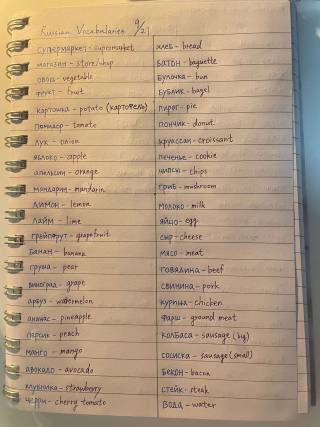 Russian Vocabularies 9/21
супермаркет - supermarket
магазин - store/shop
овощ - vegetable
фрукт - fruit
картошка - potato (картофель)
помидор - tomato
лук - onion
яблоко - apple
апельсин - orange
мандарин - mandarin
лимон - lemon
лайм - lime
грейпфрут - grapefruit
банан - banana
груша - pear
виноград - grape
арбуз - watermelon
ананас - pineapple
персик - peach
манго - mango
авокадо - avocado
клубника - strawberry
черри - cherry tomato
хлеб - bread
батон - baguette
булочка - bun
бублик - bagel
пирог - pie
пончик - donut
круассан - croissant
печенье - cookie
чипсы - chips
гриб - mushroom
молоко - milk
яйцо - egg
сыр - cheese
мясо - meat
говядина - beef
свинина - pork
курица - chicken
фарш - ground meat
колбаса - sausage (big)
сосиска - sausage (small)
бекон - bacon
стейк - steak
вода - water